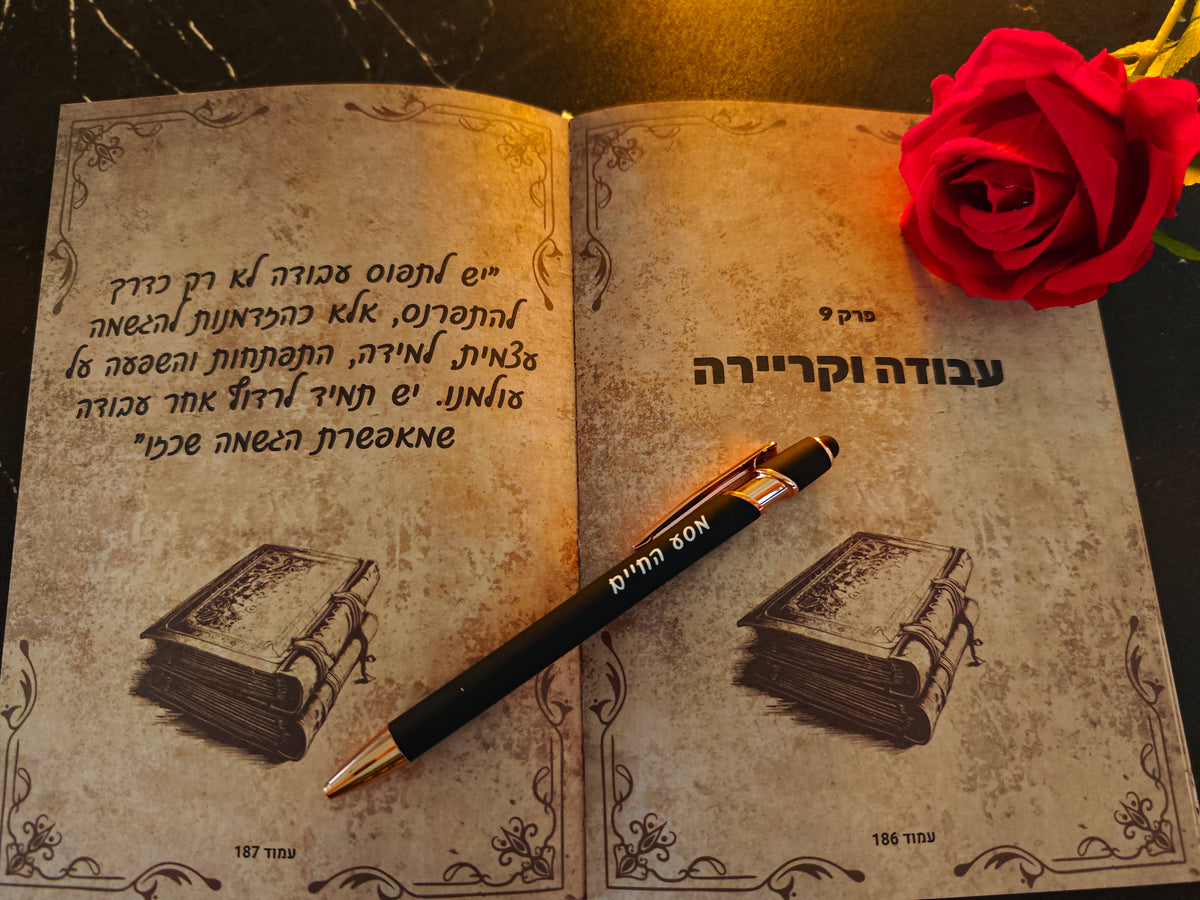 פרק 9
עבודה וקריירה
עמוד 186
"יש לתפוס עבודה לא רק כדרך
להתפרנס, אלא כהזדמנות להגשמה
עצמית, למידה, התפתחות והשפעה על
עולמנו. יש תמיד לרדוף אחר עבודה
שמאפשרת הגשמה שכזו"
עמוד 187
מסע החיים